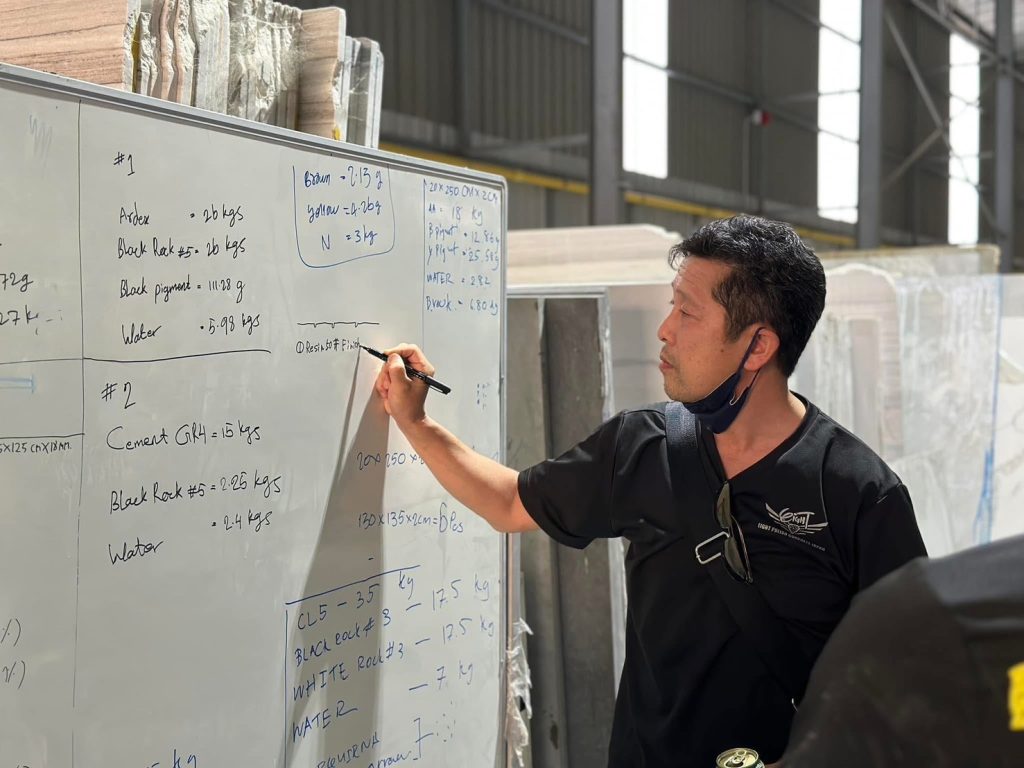 72g
27k
5x125cmx18mm
#1
Ardex = 26 kgs
Black Rock #5 = 26 kgs
Black pigment = 111.28 g
Water = 5.98 kgs
#2
Cement GR4 = 15 kgs
Black Rock #5 = 2.25 kgs
= 2.4 kgs
Water
Brown = 2.13 g
Yellow = 4.26g
N = 3kg
20 x 250 CM x 2CM
18 kg
WATER = 2.82
① Resin
20x250x
130x135x2cm = 6 Pcs
CL5 - 35 kg
BLACK ROCK # 3 - 17.5 kg
WHITE ROCK #3 - 17.5 kg
WATER - 7 kg
kg
EIGHT